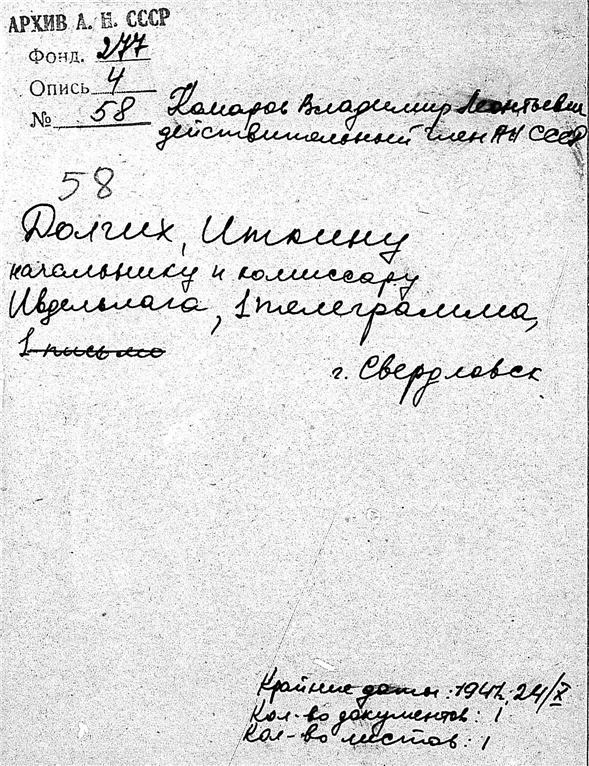 АРХИВ А. Н. СССР
Фонд. 277
Опись 4
№ 58
Комаров Владимир Леонтьевич
действительный член АН СССР
58
Долгих, Иткину
начальнику и комиссару
Ивдельлага, 1 телеграмма,
1 письмо
г. Свердловск
Крайние даты: 1941, 24/X
Кол-во документов: 1
Кол-во листов: 1